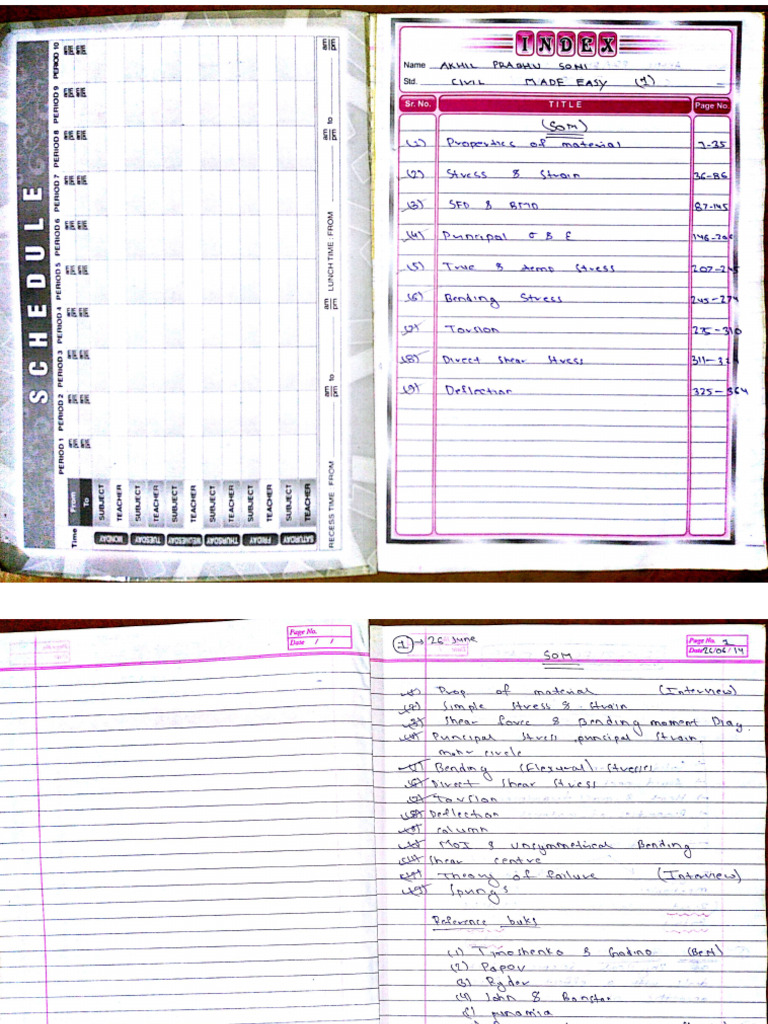 SCHEDULE
PERIOD 1 am pm am pm
PERIOD 2 am pm am pm
PERIOD 3 am pm am pm
PERIOD 4 am pm am pm
PERIOD 5 am pm am pm
PERIOD 6 am pm am pm
PERIOD 7 am pm am pm
PERIOD 8 am pm am pm
PERIOD 9 am pm am pm
PERIOD 10 am pm am pm
Time From To
MONDAY SUBJECT TEACHER
TUESDAY SUBJECT TEACHER
WEDNESDAY SUBJECT TEACHER
THURSDAY SUBJECT TEACHER
FRIDAY SUBJECT TEACHER
SATURDAY SUBJECT TEACHER
RECESS TIME : FROM am pm to am pm LUNCH TIME : FROM am pm to am pm
INDEX
Name AKHIL PRABHU SONI
Std. CIVIL MADE EASY (1)
Sr. No. TITLE Page No.
(SOM)
(1) Properties of material 1-35
(2) Stress & Strain 36-86
(3) SFD & BMD 87-145
(4) Principal σ & ε 146-
(5) True & temp Stress 207-245
(6) Bending Stress 245-274
(7) Torsion 275-310
(8) Direct Shear Stress 311-
(9) Deflection 325-364
Page No.
Date / /
(1) → 26 June
Page No. 1
Date 26/06/14
SOM
(1) Prop of material (Interview)
(2) Simple Stress & Strain
(3) Shear force & Bending moment Diag.
(4) Principal Stress, principal Strain,
mohr circle
(5) Bending (Flexural) Stresses
(6) Direct Shear Stress
(7) Torsion
(8) Deflection
(9) column
MOI & Unsymmetrical Bending
Shear centre
Theory of failure (Interview)
Springs
Reference buks
(1) Timoshenko &
(2) Popov
(3) Ryder
(4) John &
punamia